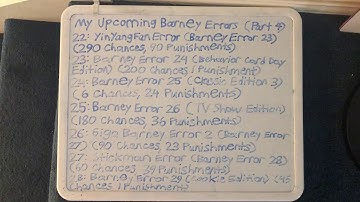 My Upcoming Barney Errors (Part 4)
22: YinYangFun Error (Barney Error 23)
(290 Chances, 40 Punishments)
23: Barney Error 24 (Behavior Card Day
Edition) (200 Chances 1 Punishment)
24: Barney Error 25 (Classic Edition 3)
(6 Chances, 24 Punishments)
25: Barney Error 26 (TV Show Edition)
(180 Chances, 36 Punishments)
26: Giga Barney Error 2 (Barney Error
27) (90 Chances, 23 Punishments)
27: Stickman Error (Barney Error 28)
(60 Chances, 39 Punishments)
28: Barney Error 29 (Cookie Edition) (45
Chances, 1 Punishment)